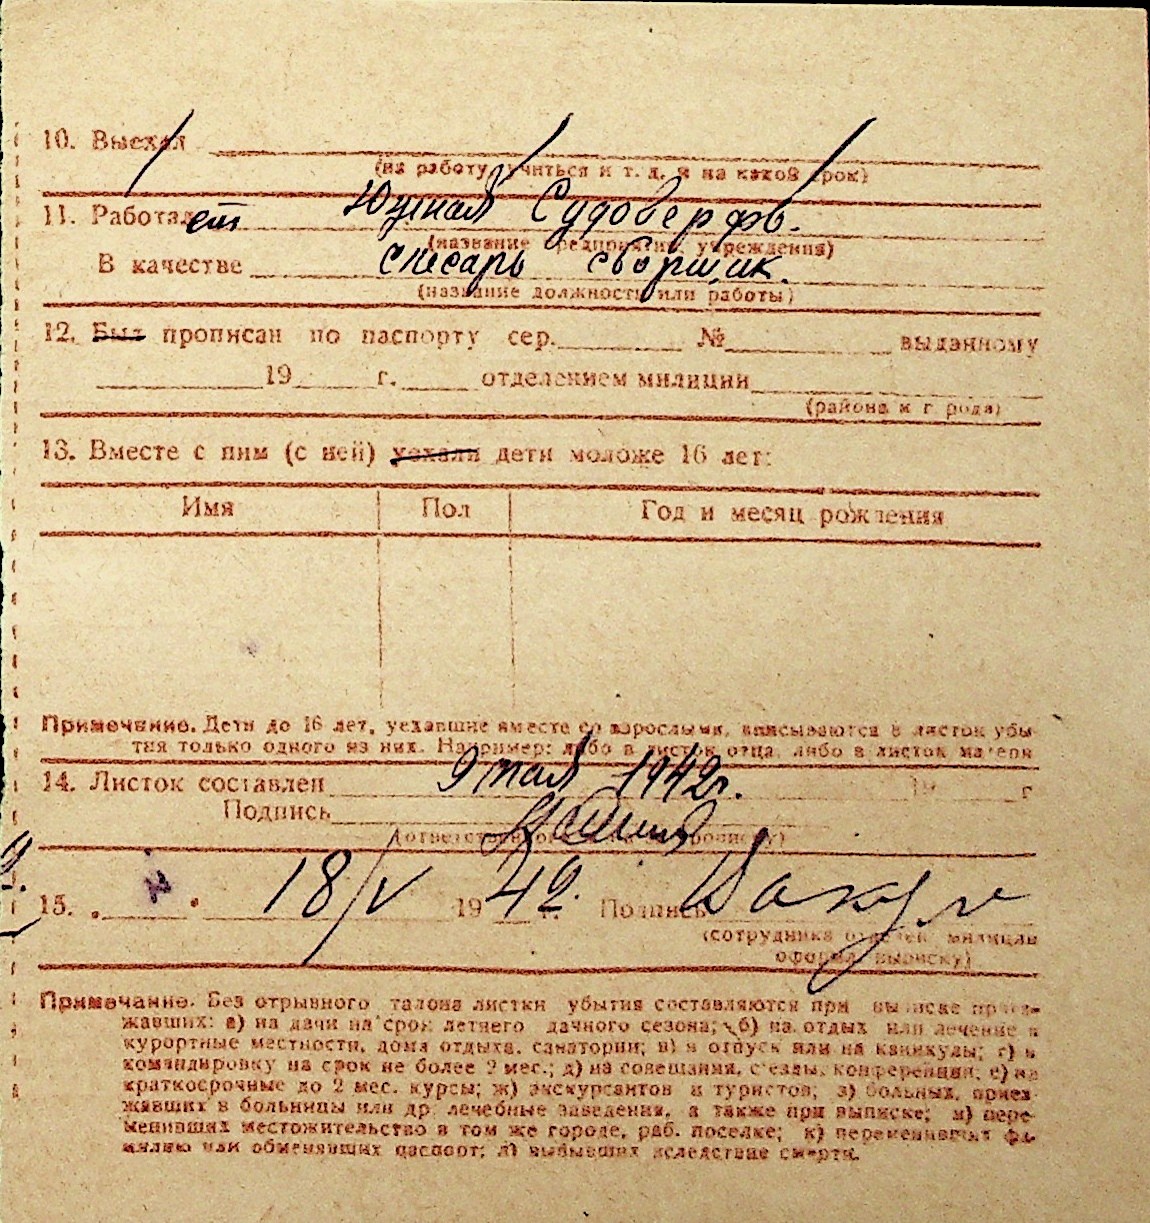 10. Выехал
(на работу, учиться и т. д. и на какой срок)
11. Работает Южная Судоверфь.
(название предприятия, учреждения)
В качестве слесарь сборщик.
(название должности или работы)
12. Был прописан по паспорту сер. № выданному
19 г. отделением милиции
(района и города)
13. Вместе с ним (с ней) уехали дети моложе 16 лет:
Имя Пол Год и месяц рождения
Примечание. Дети до 16 лет, уехавшие вместе со взрослыми, вписываются в листок убы-
тия только одного из них. Например: либо в листок отца, либо в листок матери
14. Листок составлен 9 мая 1942 г. 19 г
Подпись
(ответственного за прописку)
15. 18/V 1942 г. Подпись
(сотрудника отделен. милиции
оформ. выписку)
Примечание. Без отрывного талона листки убытия составляются при выписке проез-
жавших: а) на дачи на срок летнего дачного сезона; б) на отдых или лечение в
курортные местности, дома отдыха, санатории; в) в отпуск или на каникулы; г) в
командировку на срок не более 2 мес.; д) на совещания, съезды, конференции; е) на
краткосрочные до 2 мес. курсы; ж) экскурсантов и туристов; з) больных, приез-
жавших в больницы или др. лечебные заведения, а также при выписке; и) пере-
менивших местожительство в том же городе, раб. поселке; к) переменивших фа-
милию или обменявших паспорт; л) выбывших вследствие смерти.